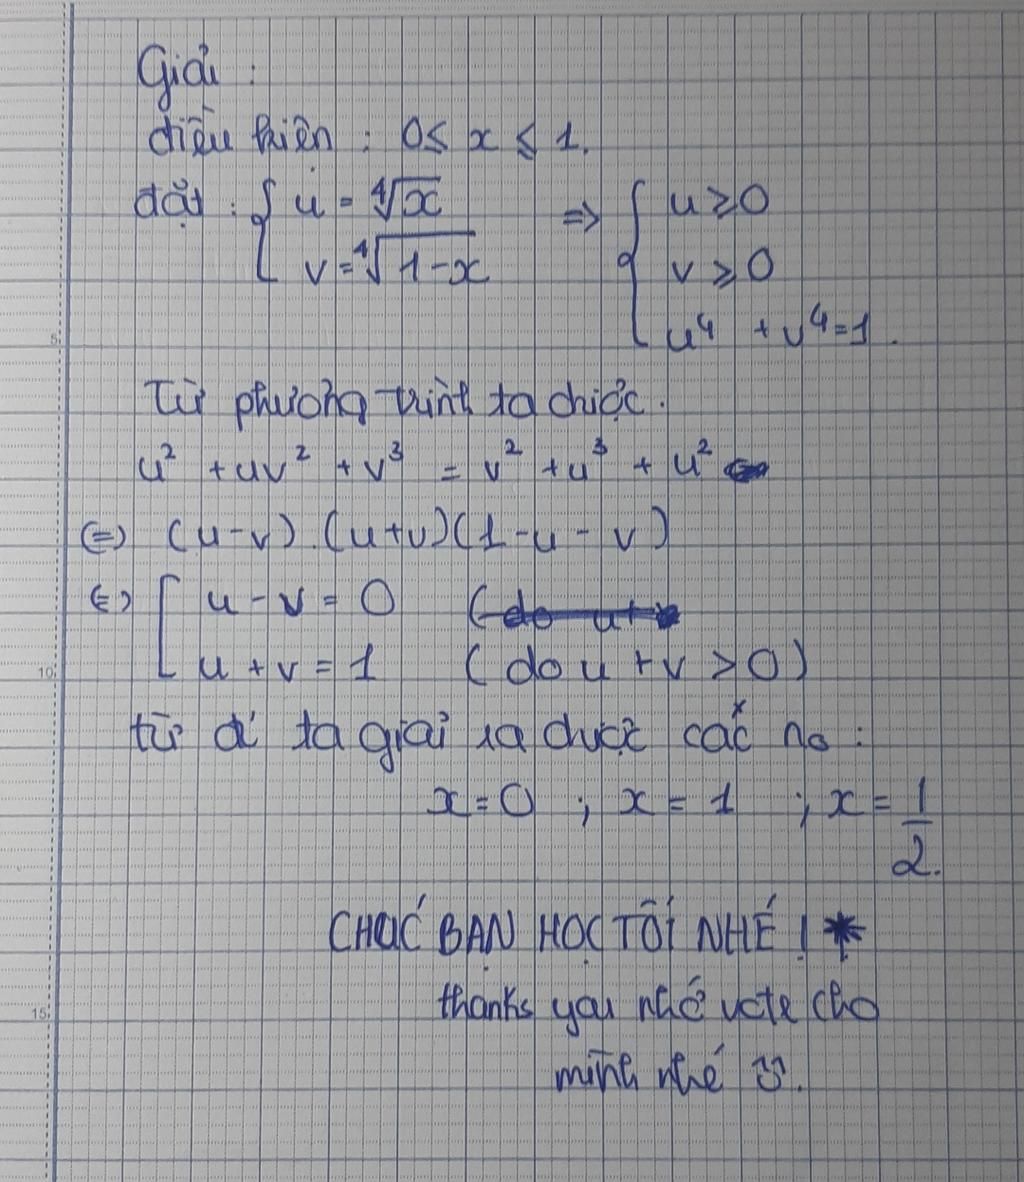 Giải :
điều kiện : 0 ≤ x ≤ 1.
đặt : { u = ∜x => { u ≥ 0
v = ∜(1-x) v ≥ 0
u⁴ + v⁴ = 1.
Từ phương trình ta được.
u² + uv² + v³ = v² + u³ + u²
(=) (u-v).(u+v)(1-u-v)
(=) [ u - v = 0
u + v = 1 (do u + v > 0)
từ đó ta giải ra được các no :
x = 0 ; x = 1 ; x = 1/2.
CHÚC BẠN HỌC TỐT NHÉ ! *
thanks you nhớ vote cho
mình nhé
5
10
15